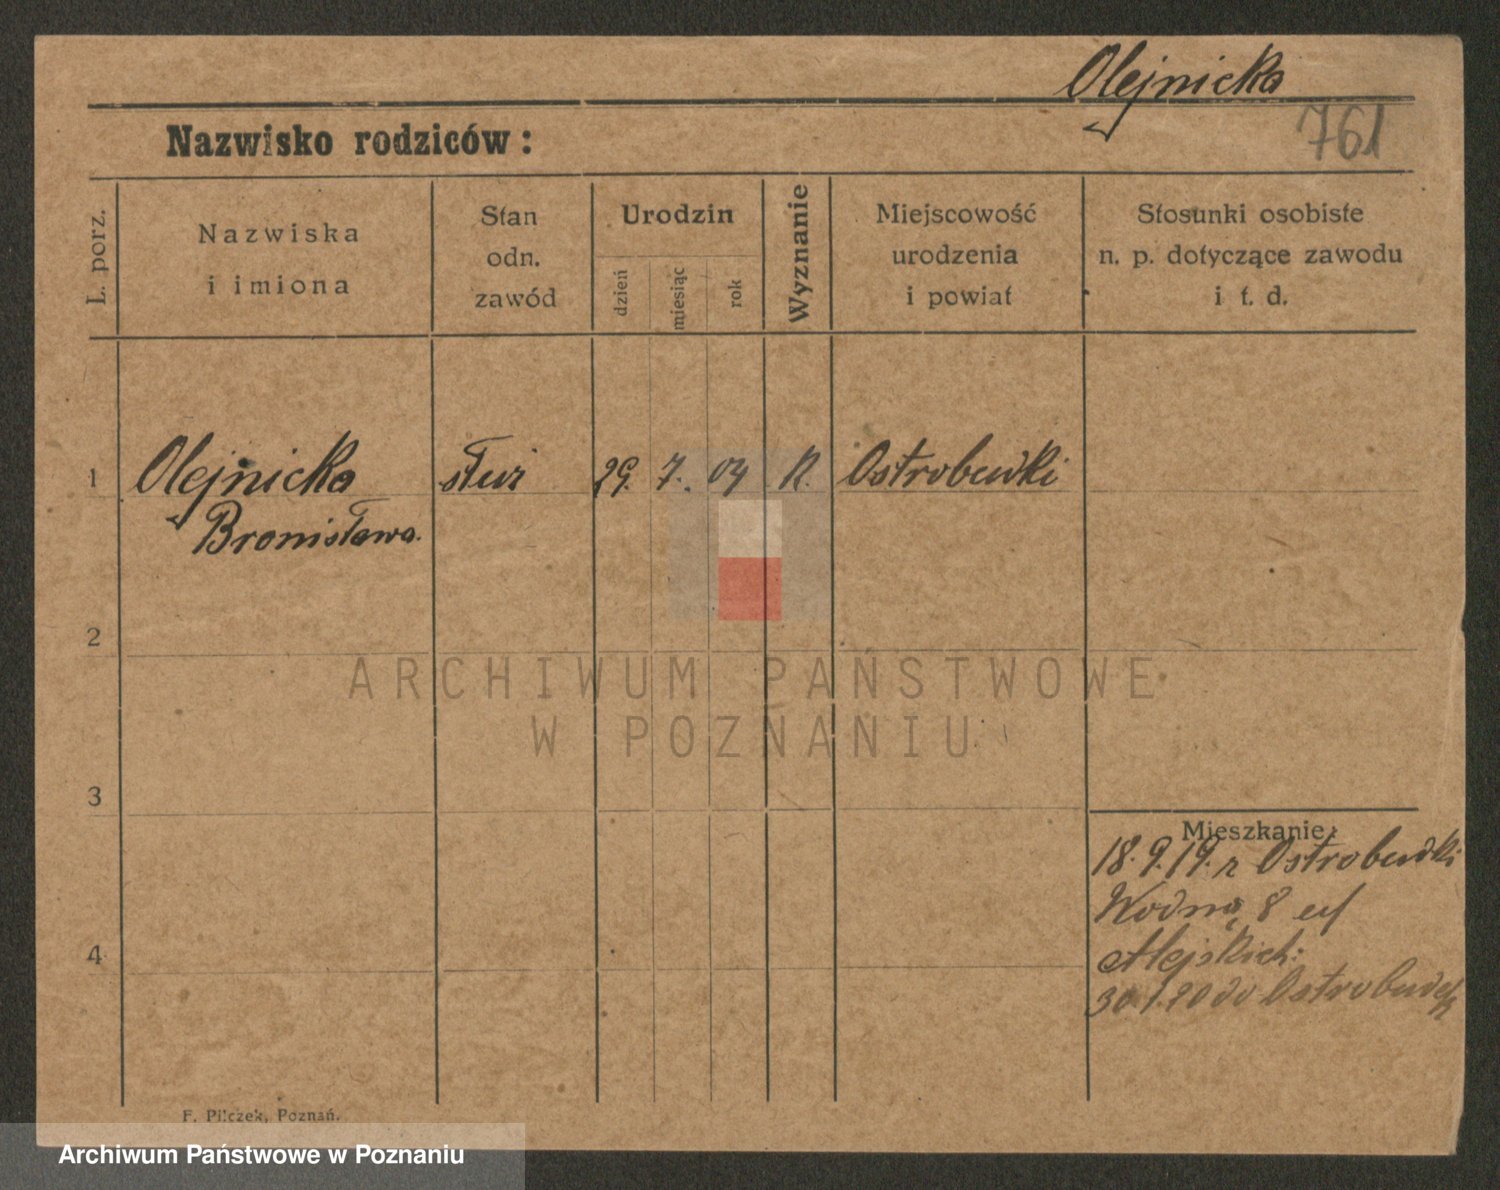 Olejnicka
761
Nazwisko rodziców:
L. porz.
Nazwiska
i imiona
Stan
odn.
zawód
Urodzin
dzień
miesiąc
rok
Wyznanie
Miejscowość
urodzenia
i powiat
Stosunki osobiste
n. p. dotyczące zawodu
i t. d.
1
Olejnicka
Bronisława.
służ
29. 7. 04
K.
Ostrobudki
2
ARCHIWUM PAŃSTWOWE
W POZNANIU
3
Mieszkanie:
18.9.19. z Ostrobudki
Wodna 8
4
30.1.20 do Ostrobudek
F. Pilczek, Poznań.
Archiwum Państwowe w Poznaniu